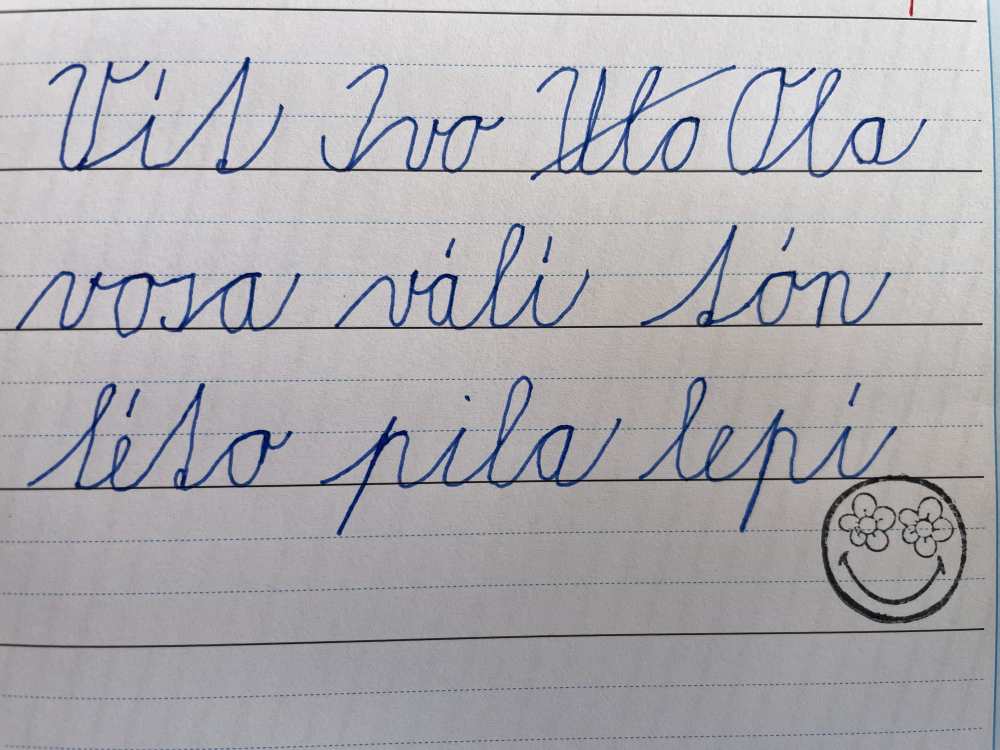 Vít Ivo Ola
vosa válí tón
léto pila lepí